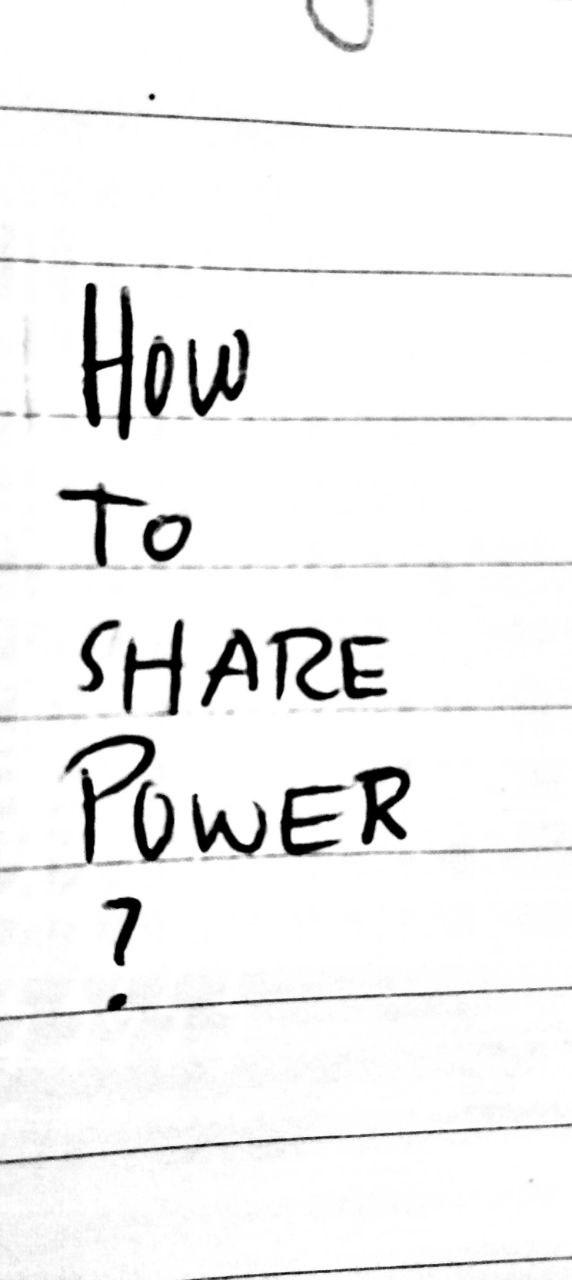 How
To
SHARE
POWER
?